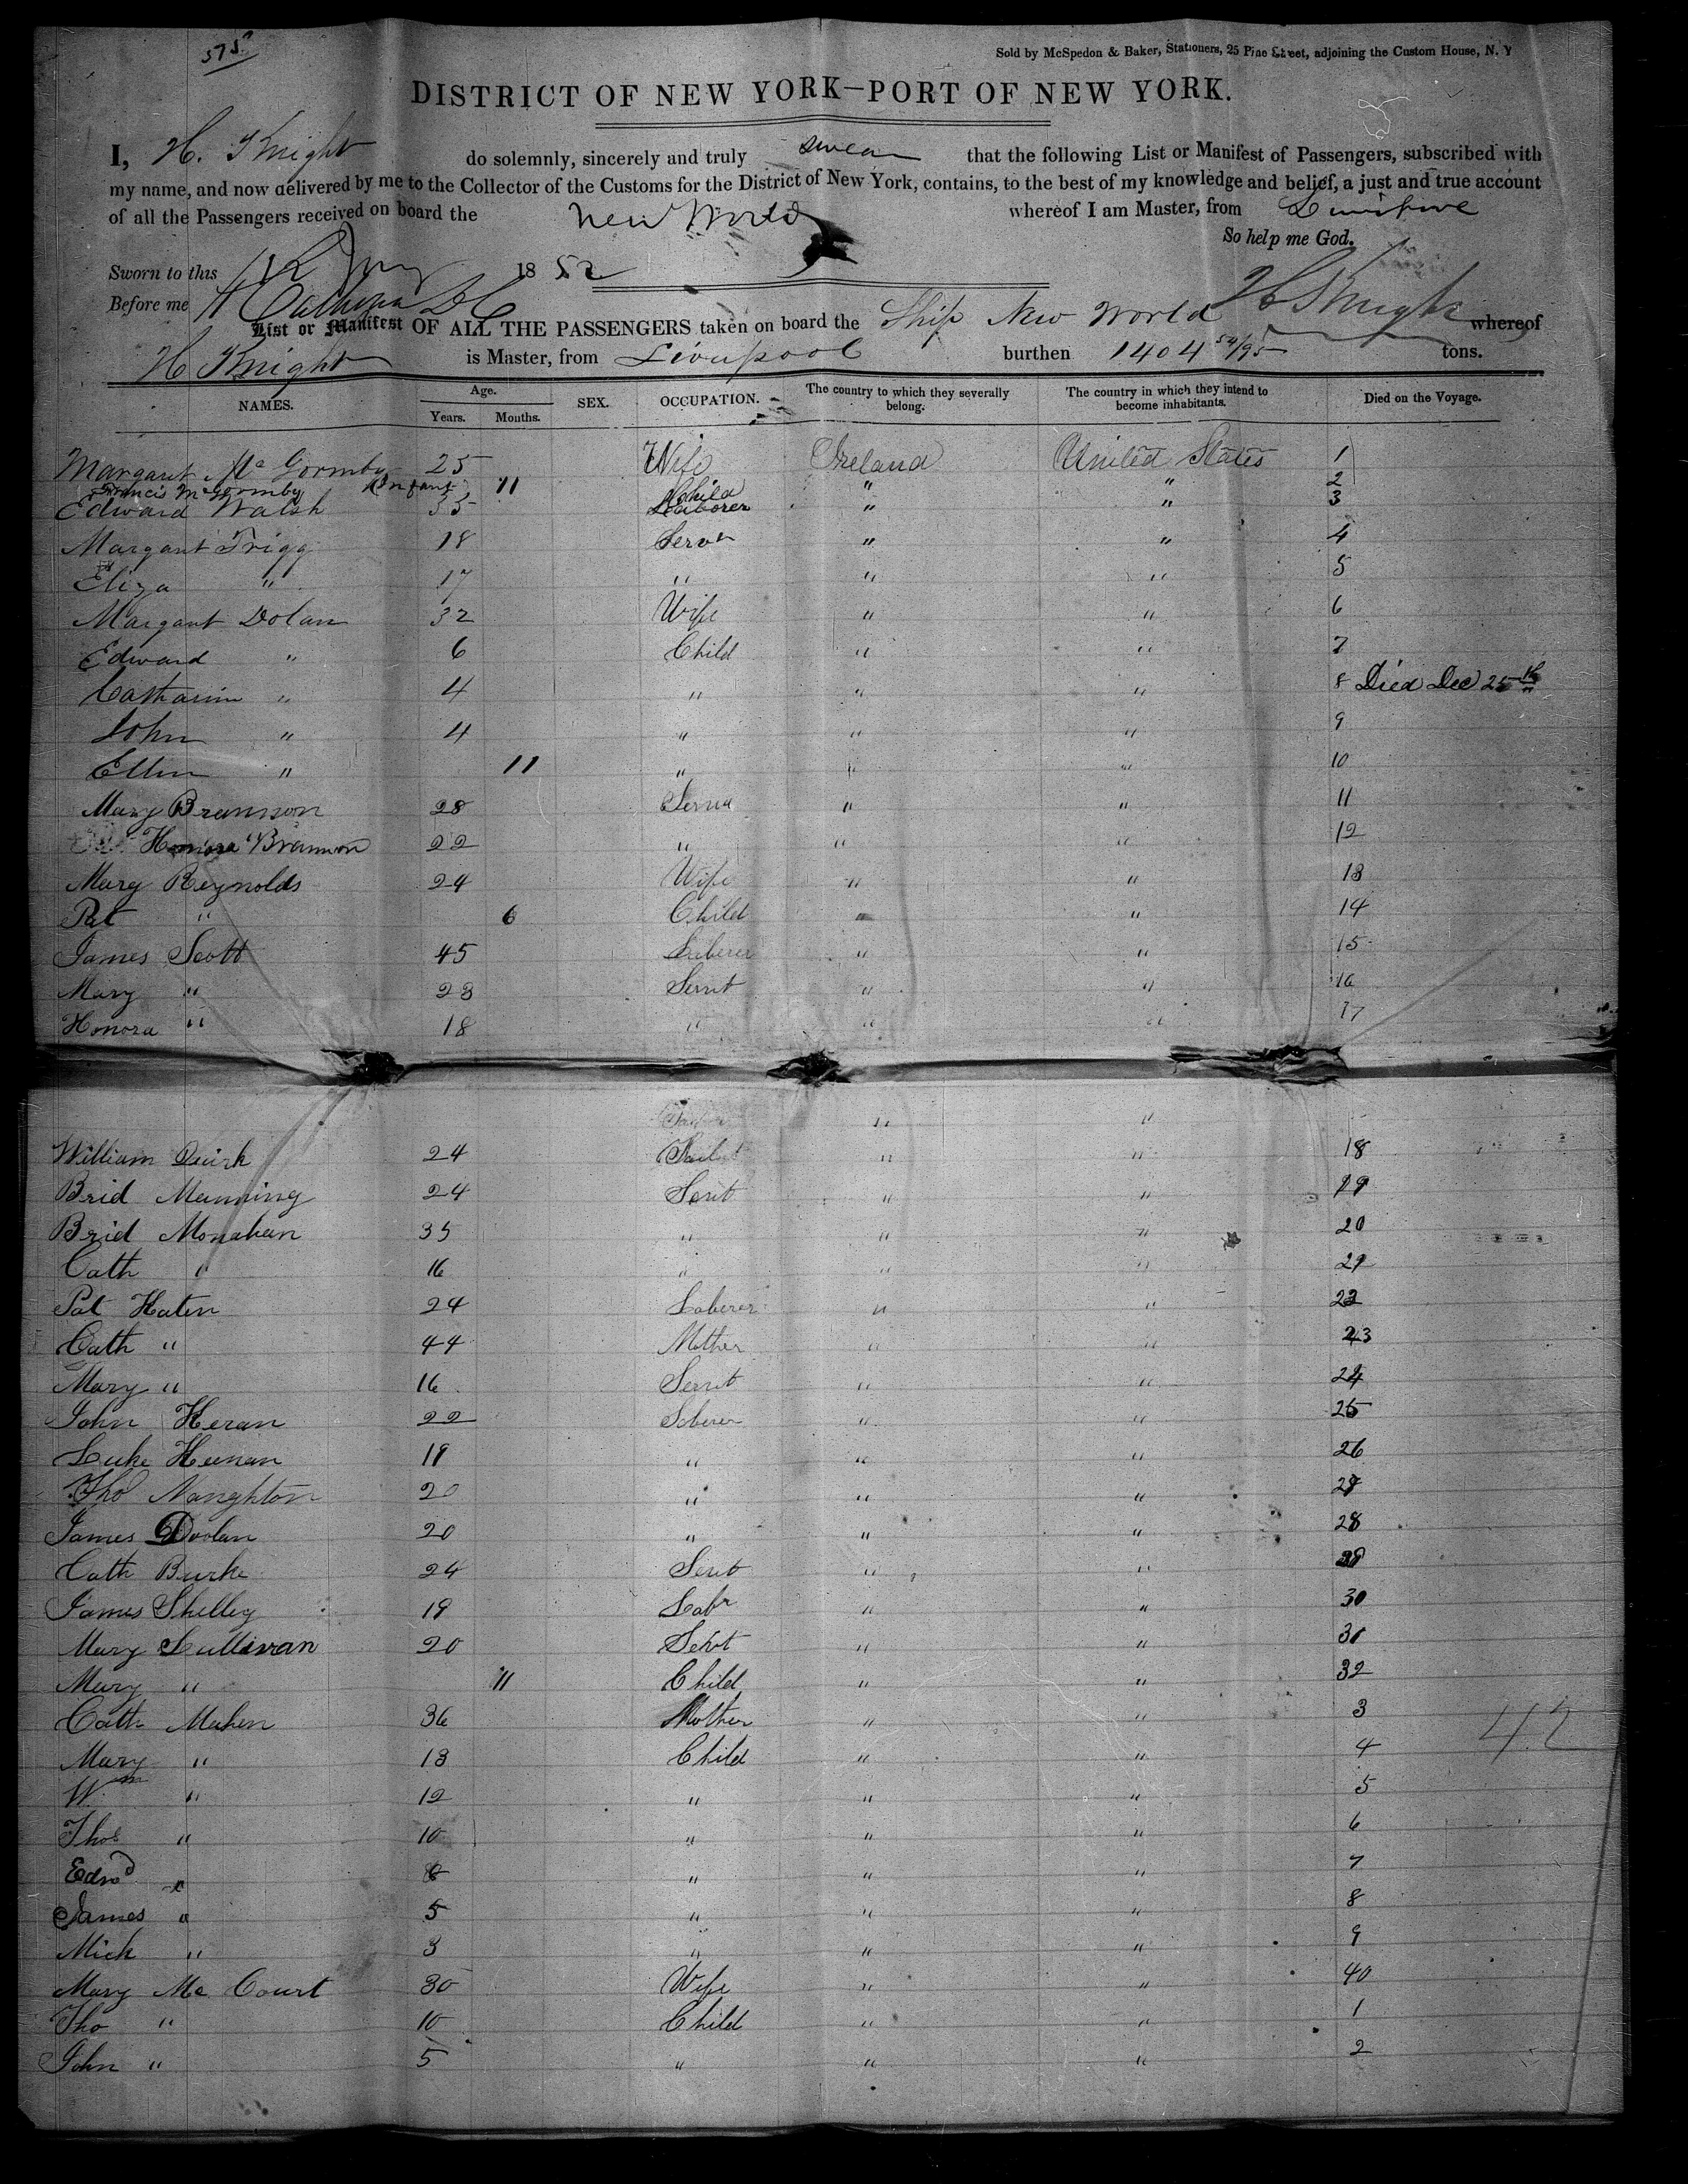 575
Sold by McSpedon & Baker, Stationers, 25 Pine Street, adjoining the Custom House, N. Y
DISTRICT OF NEW YORK—PORT OF NEW YORK.
I, H. Knight do solemnly, sincerely and truly swear that the following List or Manifest of Passengers, subscribed with
my name, and now delivered by me to the Collector of the Customs for the District of New York, contains, to the best of my knowledge and belief, a just and true account
of all the Passengers received on board the New World whereof I am Master, from
So help me God.
Sworn to this 12 1852
Before me H Knight
List or Manifest OF ALL THE PASSENGERS taken on board the Ship New World whereof
H Knight is Master, from Liverpool burthen 1404 54/95 tons.
NAMES. Age. SEX. OCCUPATION. The country to which they severally belong. The country in which they intend to become inhabitants. Died on the Voyage.
Years. Months.
Margaret Mc Gormby 25 Wife Ireland United States 1
Francis McGormby Infant 11 Child " " 2
Edward Walsh 35 Laborer " " 3
Margaret Trigg 18 Serv " " 4
Eliza " 17 " " " 5
Margaret Dolan 32 Wife " " 6
Edward " 6 Child " " 7
Catharine " 4 " " " 8 Died Dec 25th
John " 4 " " " 9
Ellen " 11 " " " 10
Mary Brannon 28 " " 11
Honora Brannon 22 " " " 12
Mary Reynolds 24 Wife " " 13
Pat " 6 Child " " 14
James Scott 45 Laberer " " 15
Mary " 28 Servt " " 16
Honora " 18 " " " 17
" "
William Quirk 24 " " 18
Brid Manning 24 Servt " " 19
Brid Monahan 35 " " " 20
Cath " 16 " " " 21
Pat Haten 24 Laberer " " 22
Cath " 44 Mother " " 23
Mary " 16 Servt " " 24
John Heran 22 Laberer " " 25
Luke Heenan 18 " " " 26
Tho Naughton 20 " " " 27
James Doolan 20 " " " 28
Cath Burke 24 Servt " " 29
James Shelley 19 Labr " " 30
Mary Sullivan 20 Servt " " 31
Mary " 11 Child " " 32
Cath Mahen 36 Mother " " 3
Mary " 13 Child " " 4
42
Wm " 12 " " " 5
Thos " 10 " " " 6
Edwd " 6 " " " 7
James " 5 " " " 8
Mick " 3 " " " 9
Mary Mc Court 30 Wife " " 40
Tho " 10 Child " " 1
John " 5 " " " 2